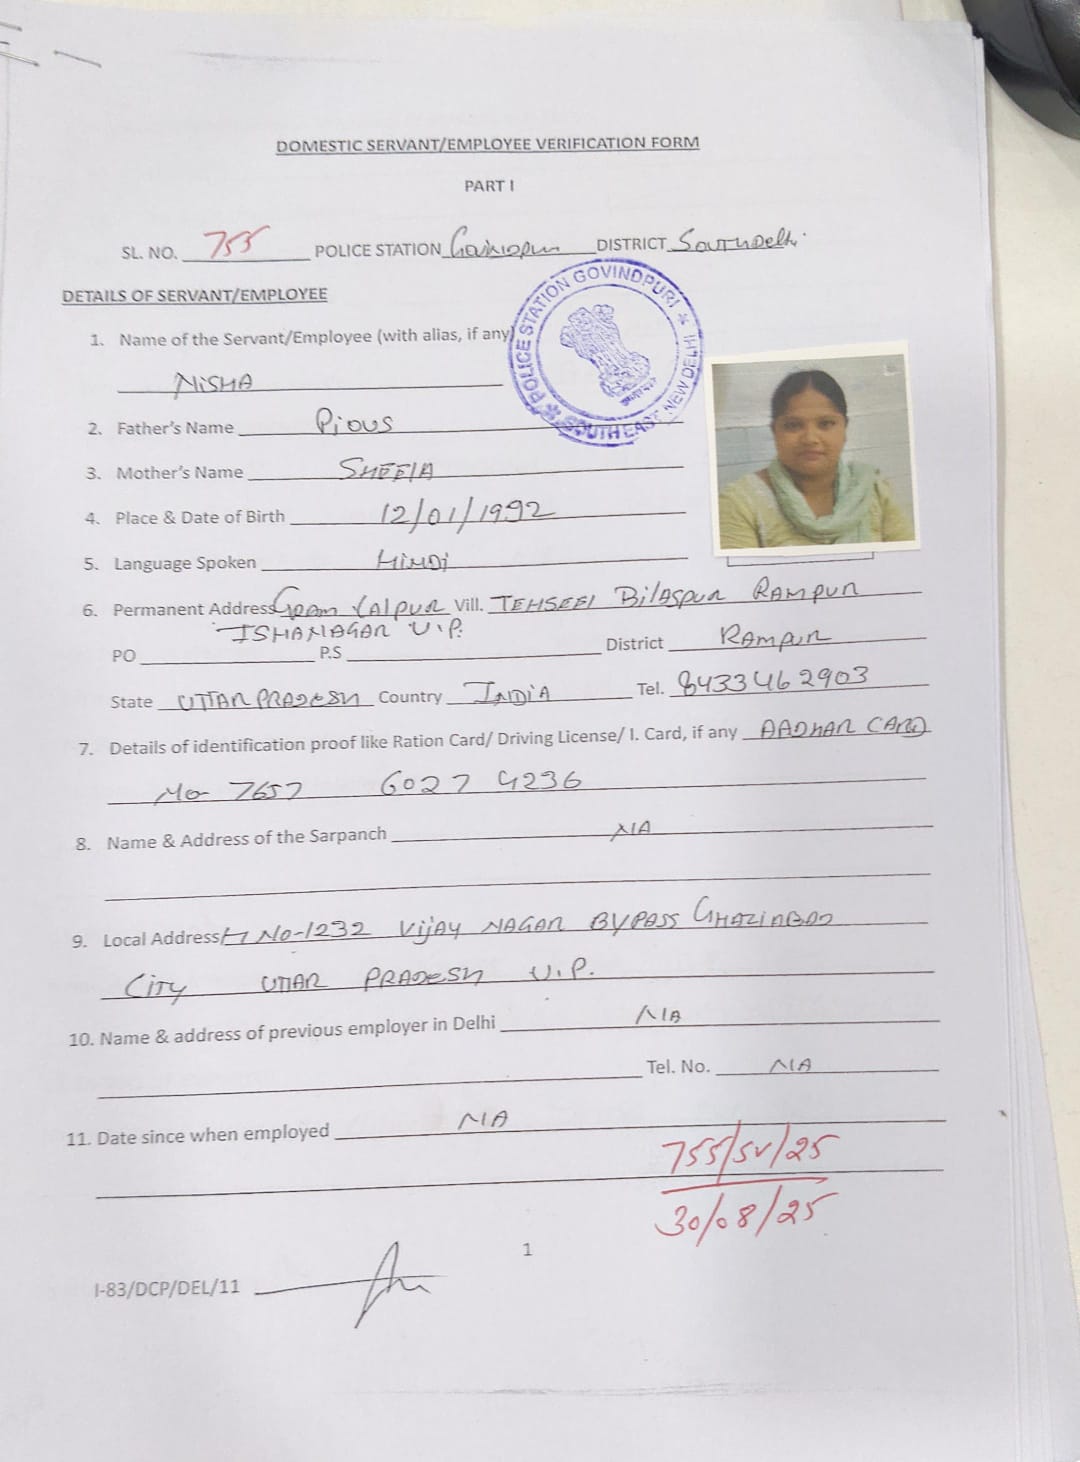 DOMESTIC SERVANT/EMPLOYEE VERIFICATION FORM
PART I
SL. NO. 755 POLICE STATION DISTRICT South Delhi
POLICE STATION GOVINDPURI
SOUTH EAST, NEW DELHI
DETAILS OF SERVANT/EMPLOYEE
1. Name of the Servant/Employee (with alias, if any)
NiSHA
2. Father's Name Pious
3. Mother's Name SHEElA
4. Place & Date of Birth 12/01/1992
5. Language Spoken HiNDi
6. Permanent Address Gram Vill. TEHSEEl BilAspur RAMpur
ISHANAGAR U.P.
PO P.S District RAMpur
State UTTAR PRADESH Country INDiA Tel. 8433462903
7. Details of identification proof like Ration Card/ Driving License/ I. Card, if any AADHAR CARD
No 7657 6027 4236
8. Name & Address of the Sarpanch NA
9. Local Address H No-1232 VijAy NAGAR BYPASS GHAZiABAD
CiTy UTTAR PRADESH U.P.
10. Name & address of previous employer in Delhi NIA
Tel. No. NIA
11. Date since when employed NIA
755/SV/25
30/08/25
1
I-83/DCP/DEL/11